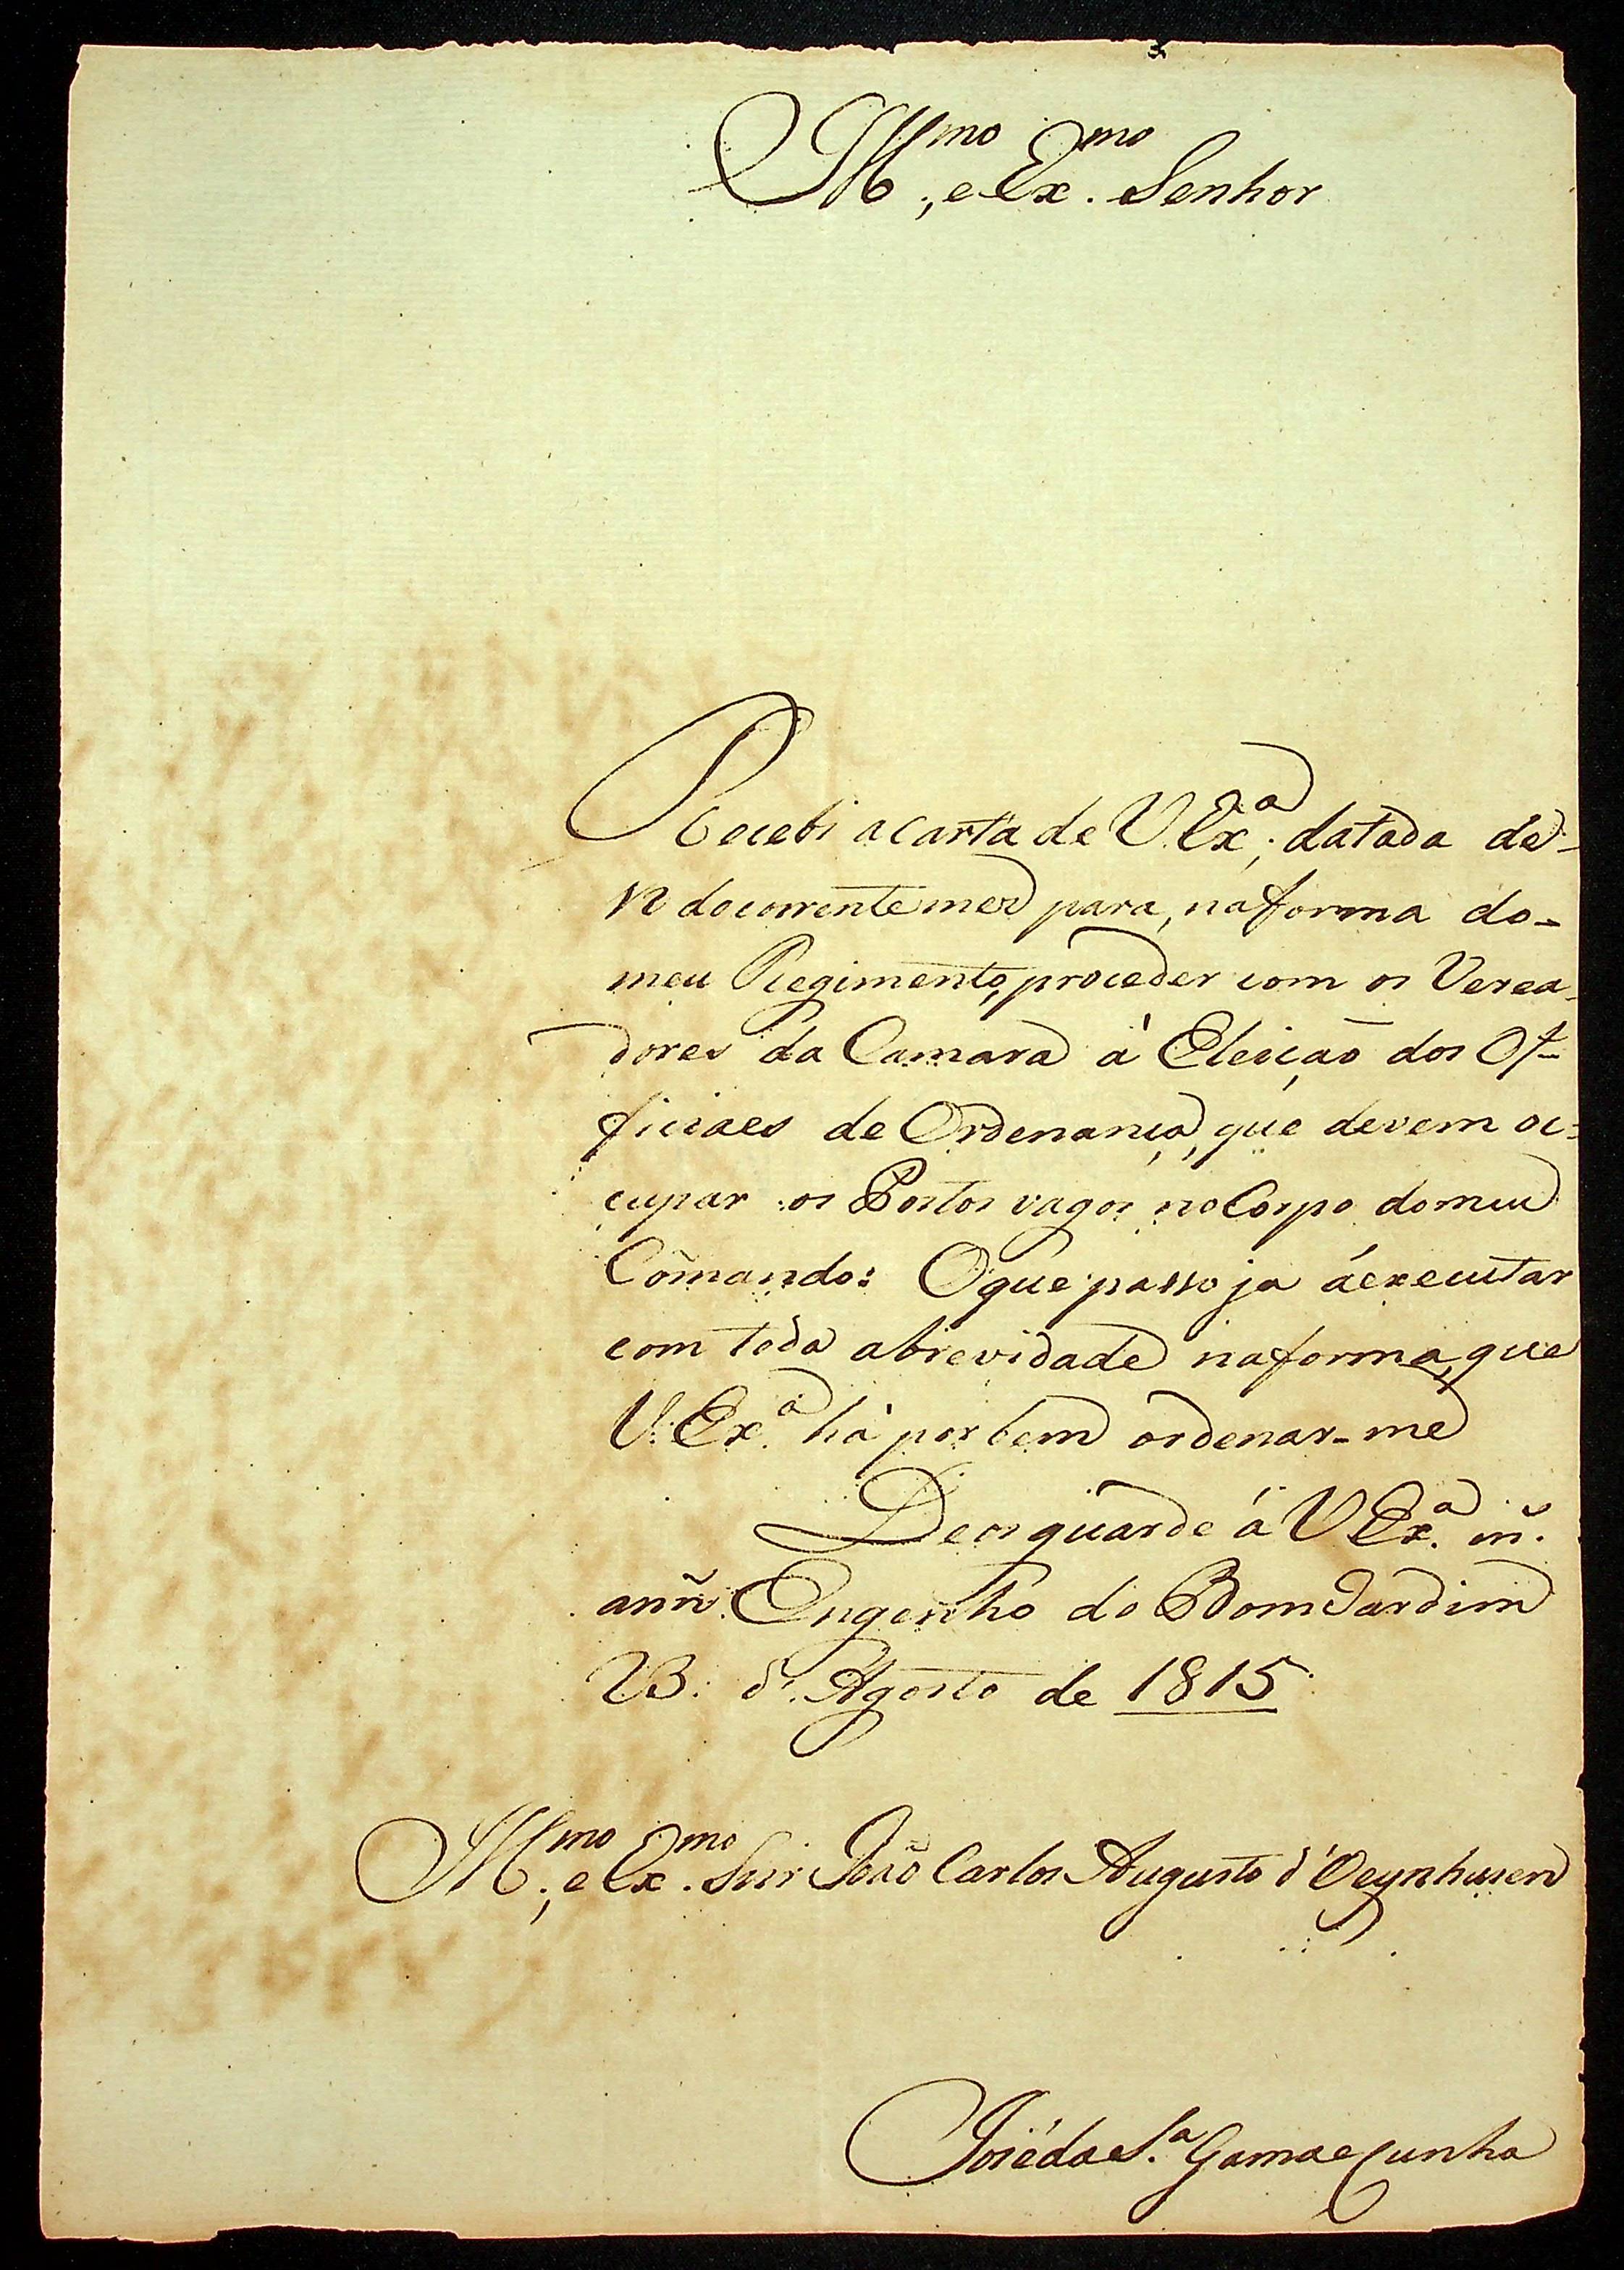 Ill.mo, e Ex.mo Senhor
Recebi a carta de V. Ex.a, datada de
12 do corrente mez para, na forma do
meu Regimento, proceder com os Verea-
dores da Camara á Eleição dos Of-
ficiaes de Ordenança, que devem oc-
cupar os Postos vagos no Corpo do meu
Com̃ando: O que passo ja á executar
com toda abrevidade na forma, que
V. Ex.a há por bem ordenar-me
Deos guarde á V Ex.a m.s
ann.s Engenho do Bom Jardim
23. d'. Agosto de 1815
Ill.mo, e Ex.mo Snr João Carlos Augusto d'Oeynhusen
José da S.a Gama e Cunha